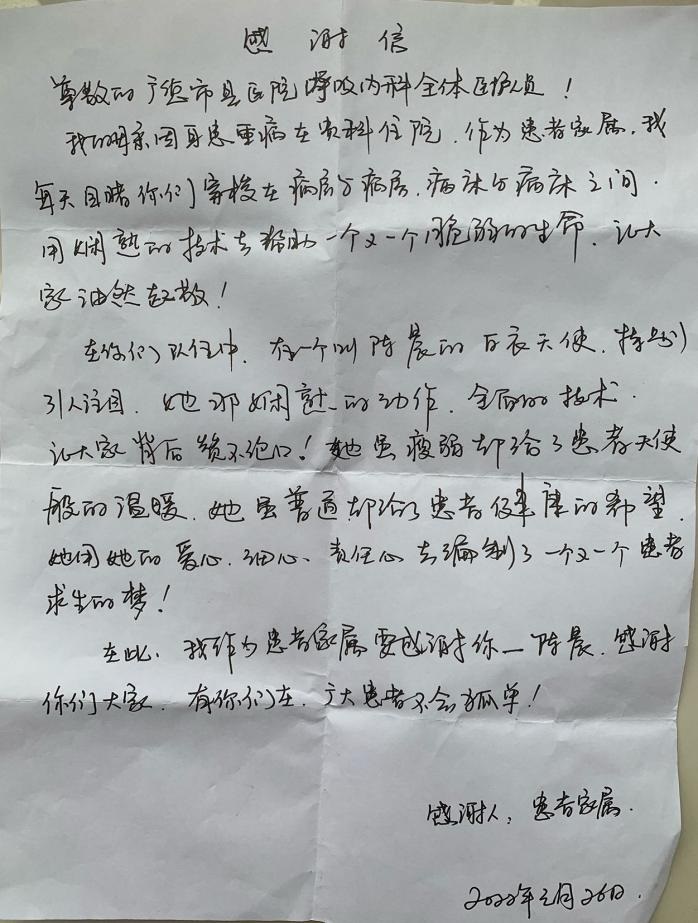 感谢信
尊敬的广德市县医院呼吸内科全体医护人员！
我的母亲因身患重病在贵科住院.作为患者家属.我
每天目睹你们穿梭在病房与病房.病床与病床之间.
用娴熟的技术去帮助一个又一个脆弱的生命.让大
家油然起敬！
在你们队伍中.有一个叫陈晨的白衣天使.特别
引人注目.她那娴熟的动作.全面的技术.
让大家背后赞不绝口！她虽瘦弱却给了患者天使
般的温暖.她虽普通却给了患者健康的希望.
她用她的爱心.细心.责任心去编制了一个又一个患者
求生的梦！
在此.我作为患者家属要感谢你—陈晨.感谢
你们大家.有你们在.广大患者不会孤单！
感谢人：患者家属.
2022年2月26日.